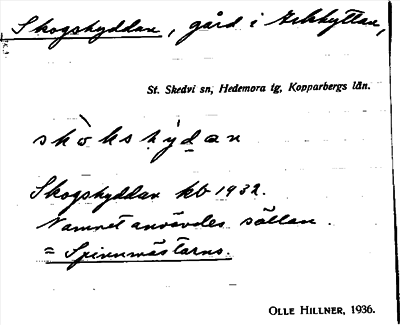 Skogshyddan, gård i Arkhyttan,
St. Skedvi sn, Hedemora tg, Kopparbergs län.
skòkshýdan
Skogshyddan kb 1932.
Namnet användes sällan.
= Spinnmästarns.
OLLE HILLNER, 1936.